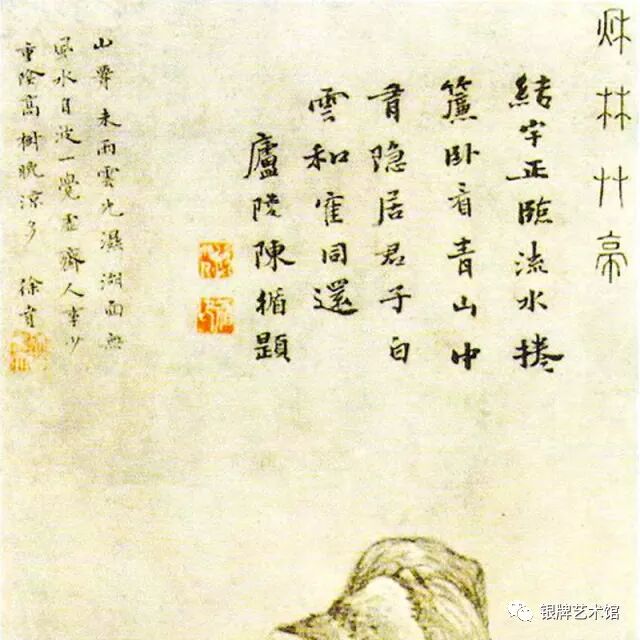 秌林艸亭
結宇正臨流水捲
簾臥看青山中
有隐居君子白
雲和隺同還
廬陵陳循題
山尊未雨雲先濕湖面無
風水自波一覺虛齋人事少
重陰高樹晚涼多 徐賁
银牌艺术馆